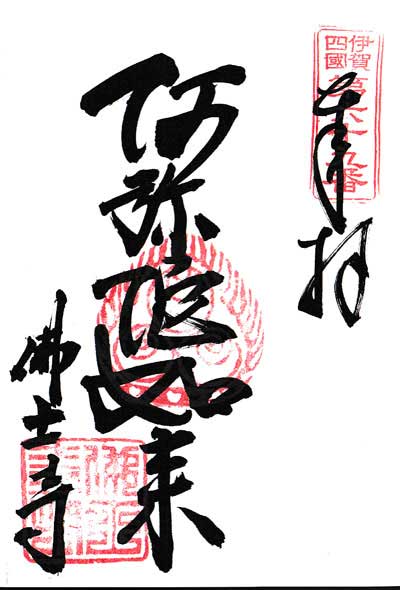 伊賀
四國
第六十九番
奉拝
阿弥陀如来
佛土寺